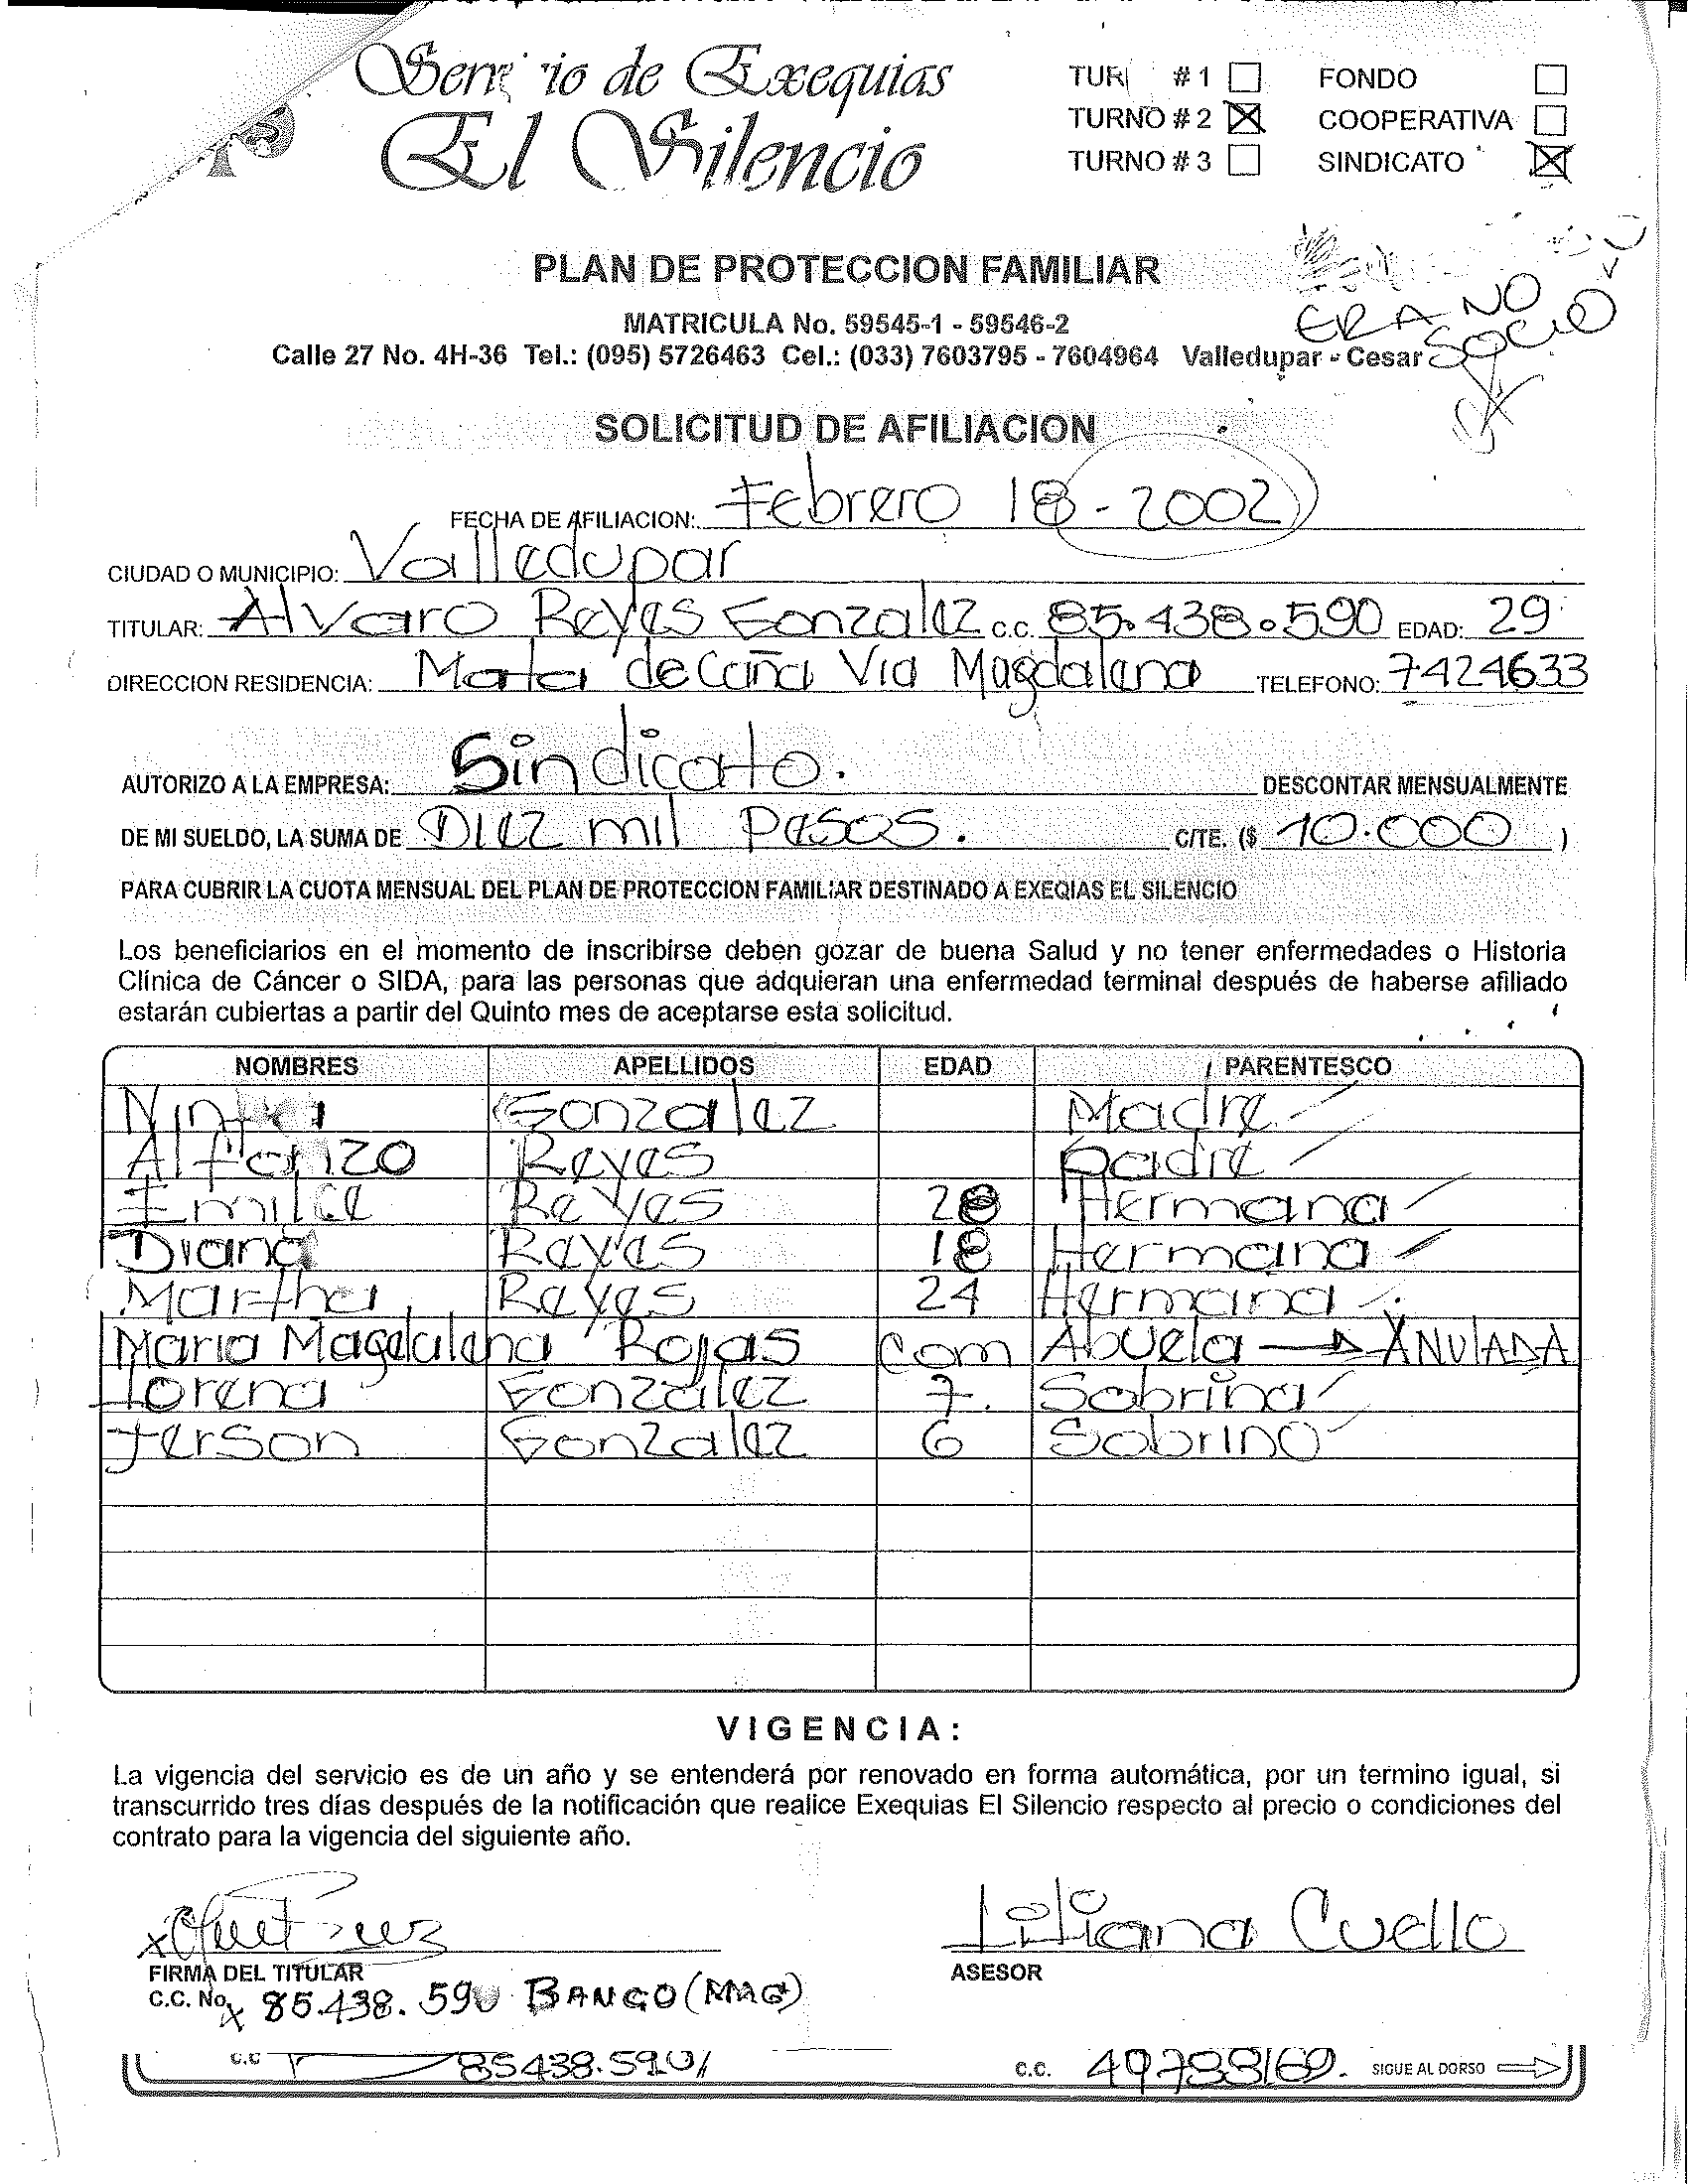 Servicio de Exequias
El Silencio
TUR # 1 FONDO
TURNO # 2 COOPERATIVA
TURNO # 3 SINDICATO
PLAN DE PROTECCION FAMILIAR
ERA NO
SOCIO
MATRICULA No. 59545-1 - 59546-2
Calle 27 No. 4H-36 Tel.: (095) 5726463 Cel.: (033) 7603795 - 7604964 Valledupar - Cesar
SOLICITUD DE AFILIACION
FECHA DE AFILIACION: Febrero 18 - 2002
CIUDAD O MUNICIPIO: Valledupar
TITULAR: Alvaro Reyes Gonzalez C.C. 85.438.590 EDAD: 29
DIRECCION RESIDENCIA: Mata de Caña Via Magdalena TELEFONO: 7424633
AUTORIZO A LA EMPRESA: Sindicato. DESCONTAR MENSUALMENTE
DE MI SUELDO, LA SUMA DE Diez mil Pesos. C/TE. ($ 10.000 )
PARA CUBRIR LA CUOTA MENSUAL DEL PLAN DE PROTECCION FAMILIAR DESTINADO A EXEQIAS EL SILENCIO
Los beneficiarios en el momento de inscribirse deben gozar de buena Salud y no tener enfermedades o Historia
Clínica de Cáncer o SIDA, para las personas que adquieran una enfermedad terminal después de haberse afiliado
estarán cubiertas a partir del Quinto mes de aceptarse esta solicitud.
NOMBRES APELLIDOS EDAD PARENTESCO
Gonzalez Madre
Alfonzo Reyes Padre
Emilce Reyes 28 Hermana
Diana Reyes 18 Hermana
Martha Reyes 24 Hermana
Maria Magdalena Rojas Com Abuela → ANULADA
Lorena Gonzalez 7. Sobrina
Jerson Gonzalez 6 Sobrino
VIGENCIA:
La vigencia del servicio es de un año y se entenderá por renovado en forma automática, por un termino igual, si
transcurrido tres días después de la notificación que realice Exequias El Silencio respecto al precio o condiciones del
contrato para la vigencia del siguiente año.
Liliana Cuello
FIRMA DEL TITULAR ASESOR
C.C. No. x 85.438.590 BANCO (MAG)
C.C 85438.590 C.C. 49788160. SIGUE AL DORSO